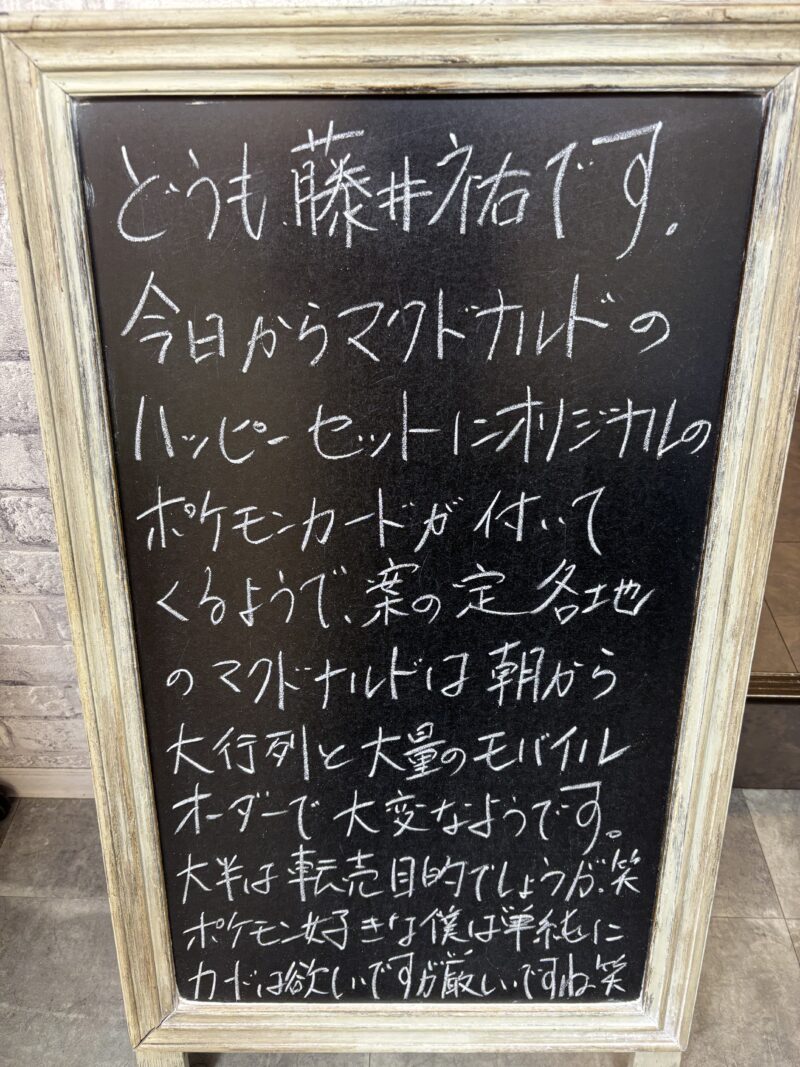 どうも、藤井祐です。
今日からマクドナルドの
ハッピーセットにオリジナルの
ポケモンカードが付いて
くるようで、案の定各地
のマクドナルドは朝から
大行列と大量のモバイル
オーダーで大変なようです。
大半は転売目的でしょうが、笑
ポケモン好きな僕は単純に
カードは欲しいですが厳しいですね笑